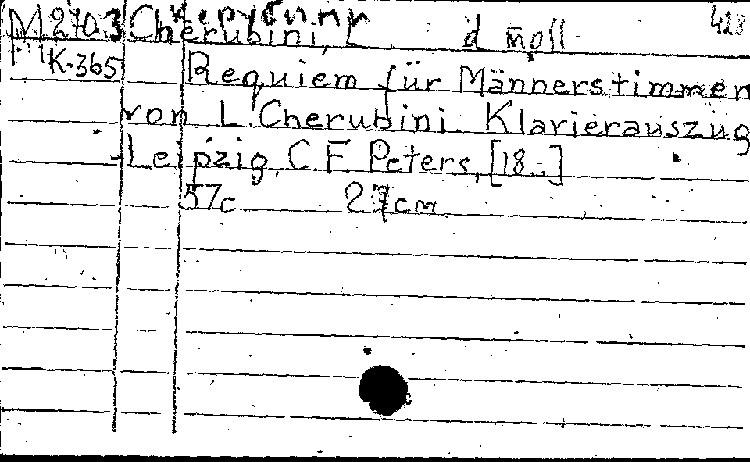 Черубини
M270.3 Cherubini, L d moll 428
K-365 Requiem für Männerstimmen
von L. Cherubini. Klavierauszug
Leipzig, C F Peters, [18..]
57c 27cm